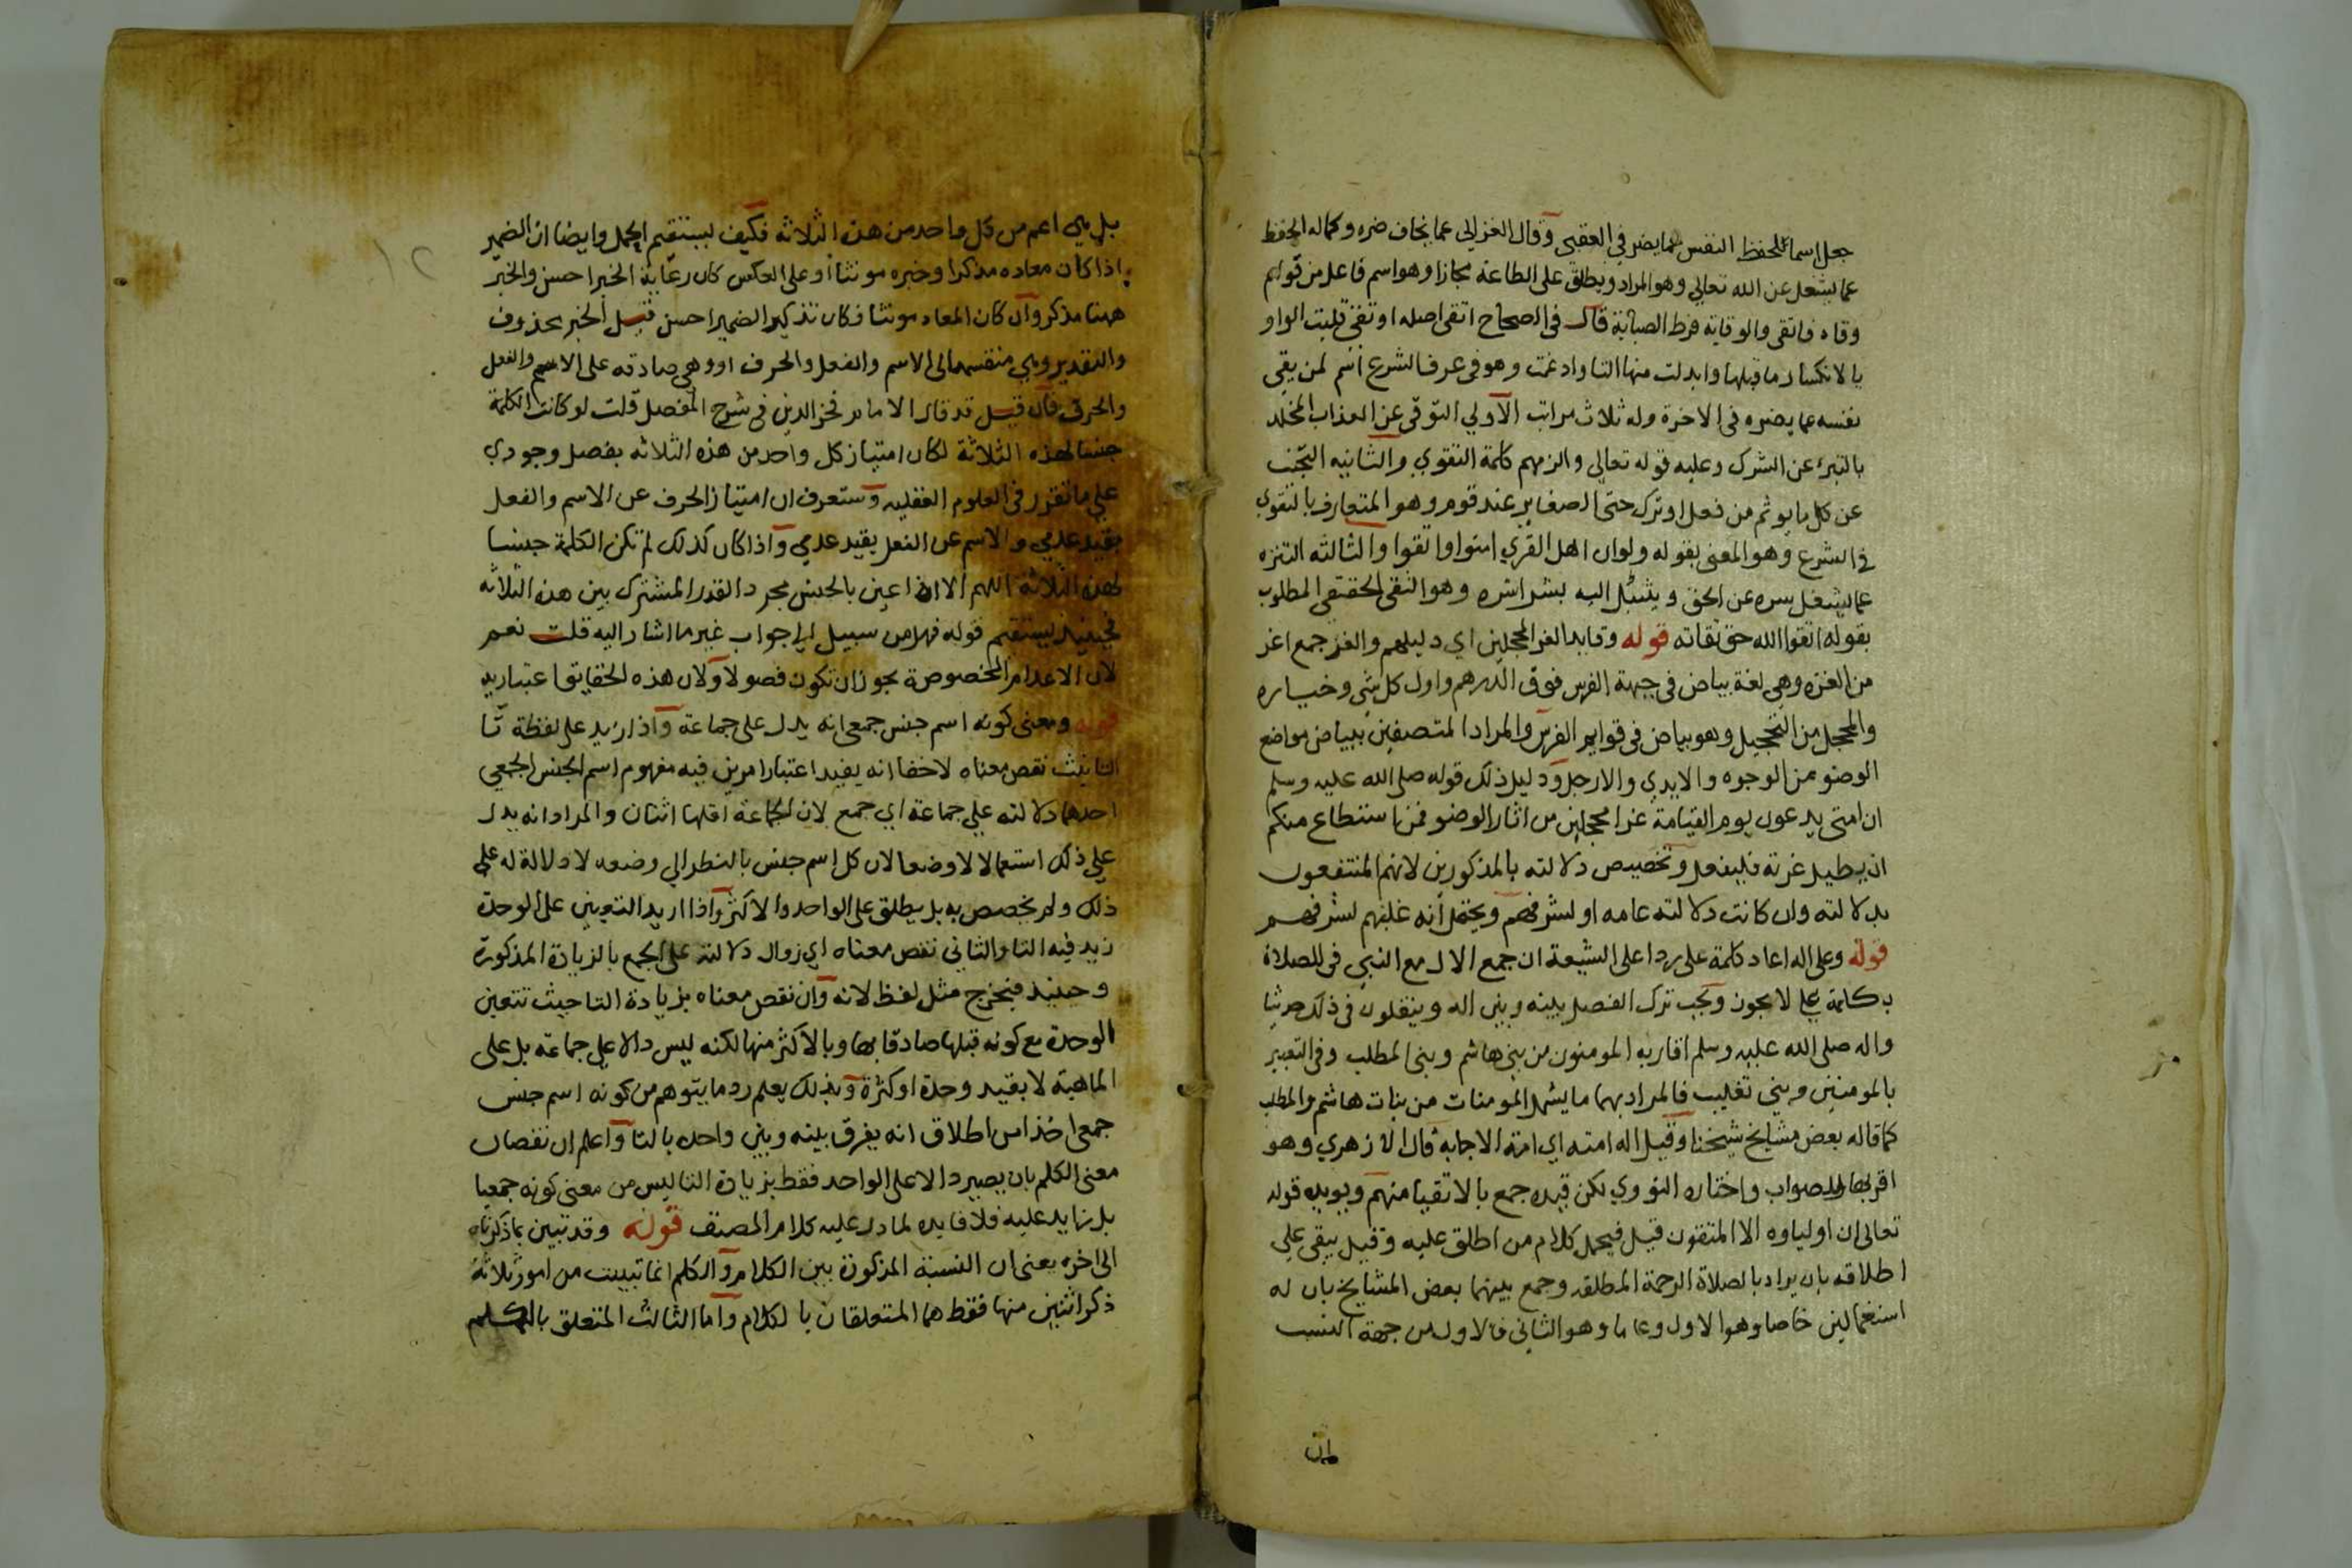 جعل اسما للحفظ النفس عما يضر في العقبى وقال الغزالي عما يخاف ضره وكماله الحفظ
عما يشغل عن الله تعالي وهو المراد ويطلق على الطاعة مجازا وهو اسم فاعل من قولهم
وقاه فاتقى والوقاية فرط الصيانة قال في الصحاح اتقى اصله اوتقى قلبت الواو
يا لانكسار ما قبلها وابدلت منها التا وادغمت وهو في عرف الشرع اسم لمن يقي
نفسه عما يضره في الاخرة وله ثلاث مراتب الاولي التوقي عن العذاب المخلد
بالتبرء عن الشرك وعليه قوله تعالي والزمهم كلمة التقوي والثانيه التجنب
عن كل ما يوثم من فعل او ترك حتى الصغاير عند قوم وهو المتعارف بالتقوي
في الشرع وهو المعنى بقوله ولو ان اهل القري امنوا واتقوا والثالثه التنزه
عما يشغل سره عن الحق ويتبتل اليه بشراشره وهو التقى الحقيقي المطلوب
بقوله اتقوا الله حق تقاته قوله وقايد الغر المحجلين اي دليلهم والغر جمع اغر
من الغره وهي لغة بياض في جبهة الفرس فوق الدرهم واول كل شي وخياره
والمحجل من التحجيل وهو بياض في قوايم الفرس والمراد المتصفين ببياض مواضع
الوضو من الوجوه والايدي والارجل ودليل ذلك قوله صلى الله عليه وسلم
ان امتي يدعون يوم القيامة غرا محجلين من اثار الوضو فمن استطاع منكم
ان يطيل غرته فليفعل وتخصيص دلالته بالمذكورين لانهم المنتفعون
بدلالته وان كانت دلالته عامه او لشرفهم ويحتمل انه غلبهم لشرفهم
قوله وعلى اله اعاد كلمة على ردا على الشيعة ان جمع الال مع النبي في الصلاة
بكلمة على لا يجوز ويجب ترك الفصل بينه وبين اله وينقلون في ذلك حديثا
واله صلى الله عليه وسلم اقاربه المومنون من بني هاشم وبني المطلب وفي التعبير
بالمومنين وبني تغليب فالمراد بهما ما يشمل المومنات من بنات هاشم والمطلب
كما قاله بعض مشايخ شيخنا وقيل اله امته اي امة الاجابة قال الازهري وهو
اقربها للصواب واختاره النووي لكن قيده جمع بالاتقيا منهم ويويده قوله
تعالى ان اولياوه الا المتقون قيل فيحمل كلام من اطلق عليه وقيل يبقى علي
اطلاقه بان يراد بالصلاة الرحمة المطلقه وجمع بينهما بعض المشايخ بان له
استعمالين خاصا وهو الاول وعاما وهو الثاني فالاول من جهة النسب
بل هي اعم من كل واحد من هذه الثلاثه فكيف يستقيم الحمل وايضا ان الضمير
اذا كان معاده مذكرا وخبره مونثا او على العكس كان رعاية الخبر احسن والخبر
ههنا مذكر وان كان المعاد مونثا فكان تذكير الضمير احسن قيل الخبر محذوف
والتقدير وهي منقسمه الى الاسم والفعل والحرف او وهي صادقه على الاسم والفعل
والحرف فان قيل قد قال الامام فخر الدين في شرح المفصل قلت لو كانت الكلمة
جنسا لهذه الثلاثة لكان امتياز كل واحد من هذه الثلاثه بفصل وجودي
علي ما تقرر في العلوم العقليه وستعرف ان امتياز الحرف عن الاسم والفعل
بقيد عدمي والاسم عن الفعل بقيد عدمي واذا كان كذلك لم تكن الكلمة جنسا
لهذه الثلاثة اللهم الا اذا عني بالجنس مجرد القدر المشترك بين هذه الثلاثه
فحينيذ يستقيم قوله فهل من سبيل الى جواب غير ما اشار اليه قلت نعم
لان الاعدام المخصوصة يجوز ان تكون فصولا ولان هذه الحقايق اعتباريه
قوله ومعنى كونه اسم جنس جمعي انه يدل على جماعة واذا زيد على لفظة تا
التانيث نقص معناه لا خفا انه يفيد اعتبار امرين فيه مفهوم اسم الجنس الجمعي
احدهما دلالته علي جماعة اي جمع لان الجماعة اقلها اثنان والمراد انه يدل
علي ذلك استعمالا لا وضعا لان كل اسم جنس بالنظر الي وضعه لا دلالة له علي
ذلك ولم يخصص به بل يطلق على الواحد والاكثر واذا اريد التعيين على الوحدة
زيد فيه التا والثاني نقص معناه اي زوال دلالته على الجمع بالزيادة المذكورة
وحينيذ فيخرج مثل لفظ لانه وان نقص معناه بزيادة التا حيث تتعين
الوحدة مع كونه قبلها صادقا بها وبالاكثر منها لكنه ليس دالا علي جماعة بل على
الماهية لا بقيد وحدة او كثرة وبذلك يعلم رد ما يتوهم من كونه اسم جنس
جمعي اخذا من اطلاق انه يفرق بينه وبين واحده بالتا واعلم ان نقصان
معنى الكلم بان يصير دالا على الواحد فقط بزيادة التا ليس من معنى كونه جمعيا
بل زايد عليه فلا فايده لما دل عليه كلام المصنف قوله وقد تبين بما ذكرناه
الى اخره يعني ان النسبة المذكورة بين الكلام والكلم انما تبينت من امور ثلاثة
ذكر اثنين منها فقط هما المتعلقان بالكلام واما الثالث المتعلق بالكلم